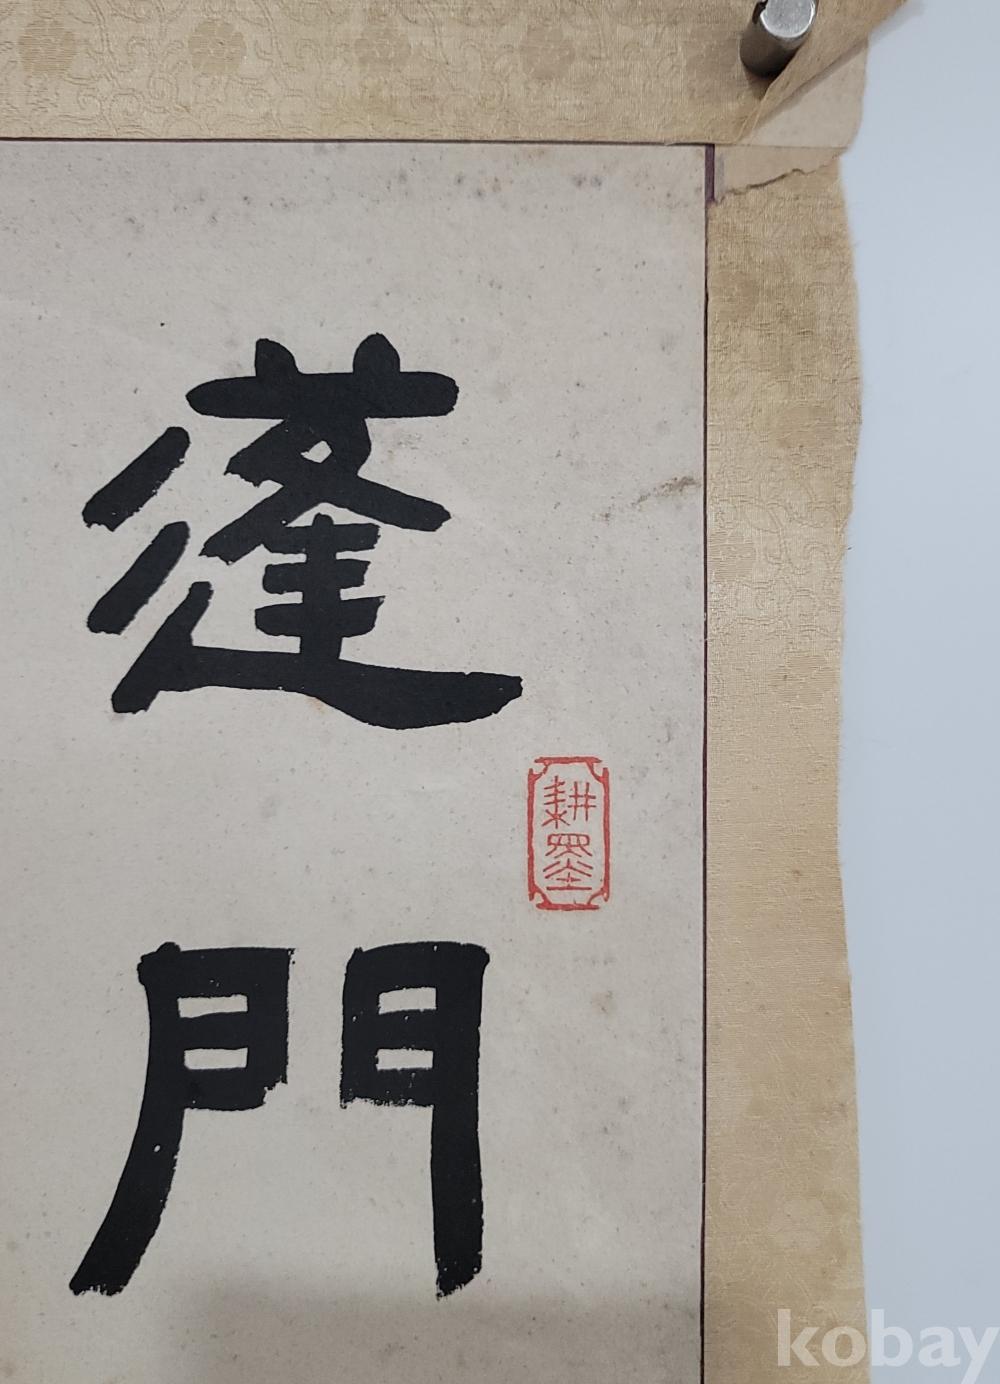 蓬
門
耕墨
kobay